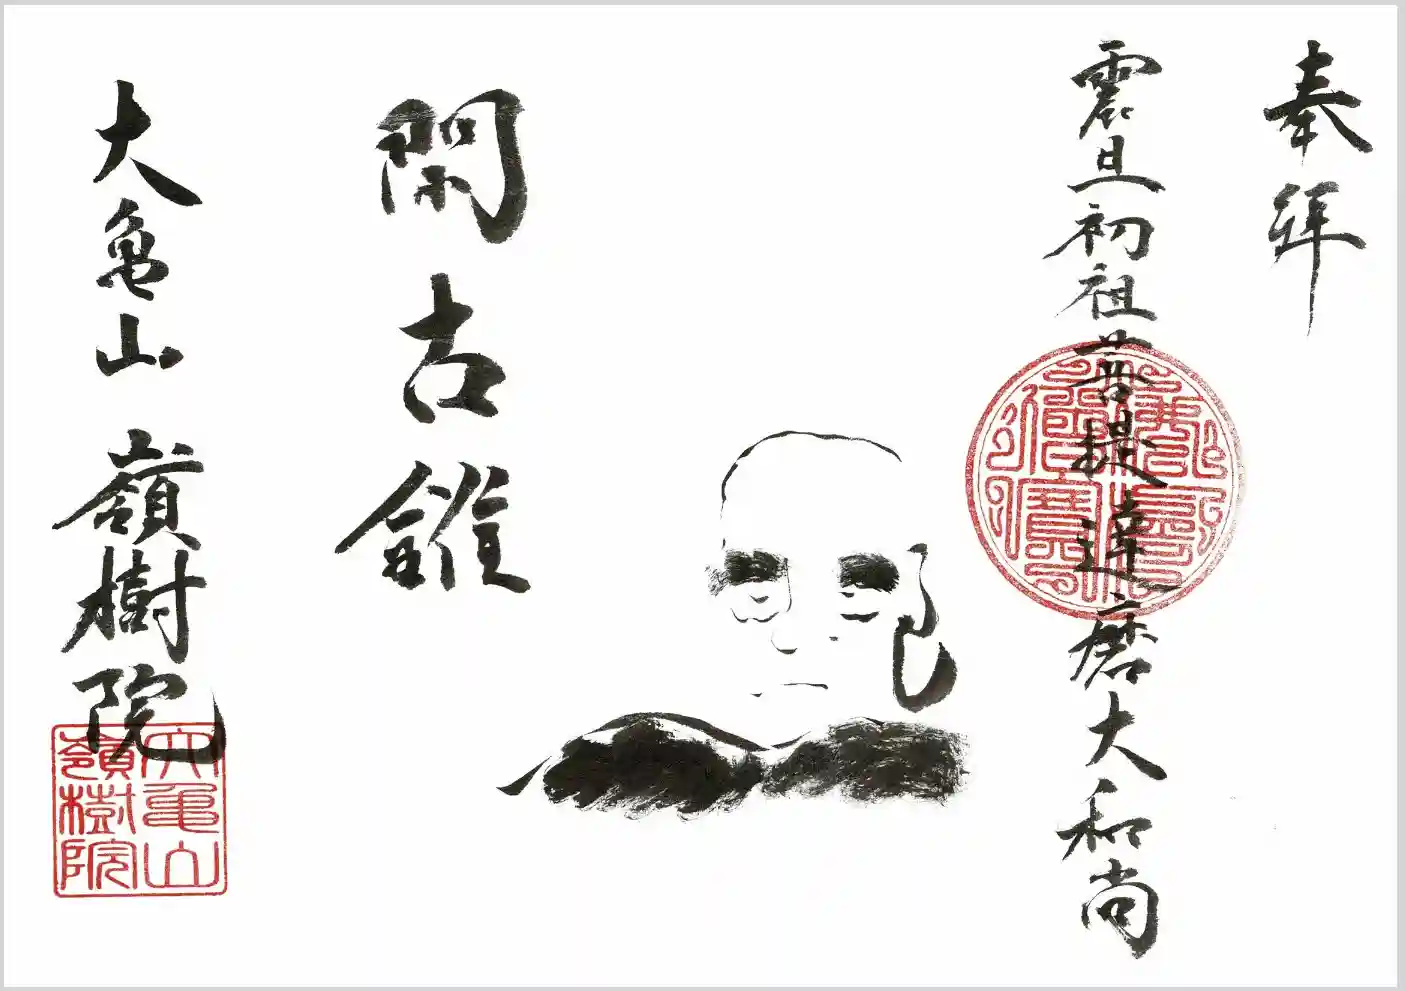 奉拝
震旦初祖菩提達磨大和尚
閑古錐
大亀山 嶺樹院
大亀山
嶺樹院